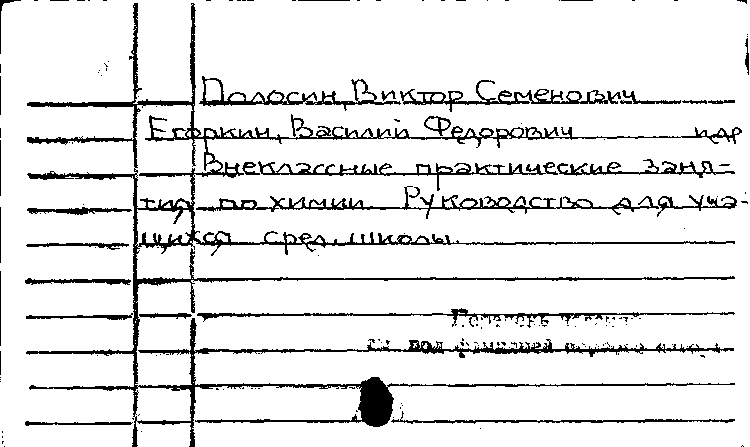 Полосин, Виктор Семенович
Егоркин, Василий Федорович и др
Внеклассные практические заня-
тия по химии. Руководство для уча-
щихся сред. школы.
под фамилией